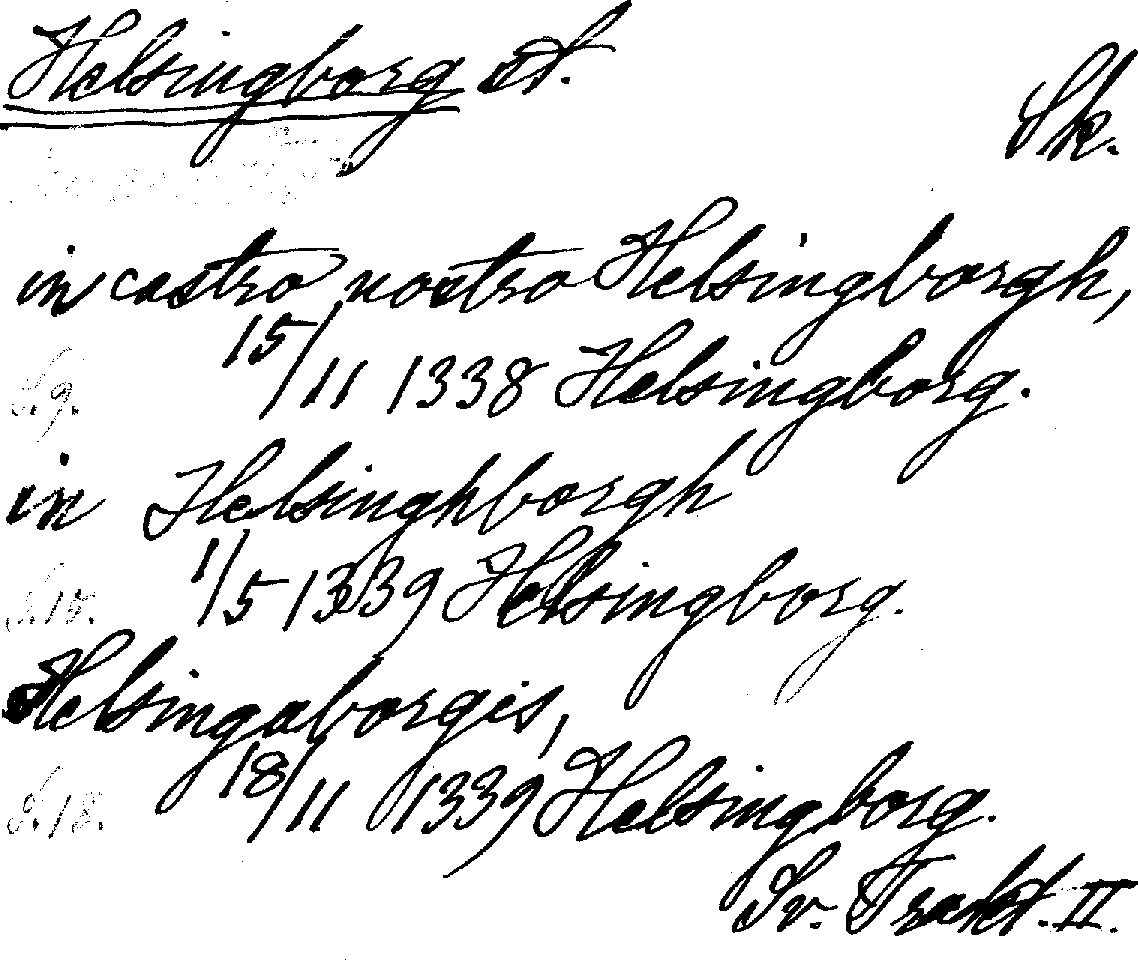 Helsingborg st.
Sk.
in castro nostro Helsingborgh,
S.9. 15/11 1338 Helsingborg.
in Helsinghborgh
S.15. 1/5 1339 Helsingborg.
Helsingaborgis,
S.18. 18/11 1339 Helsingborg.
Sv. Trakt. II.